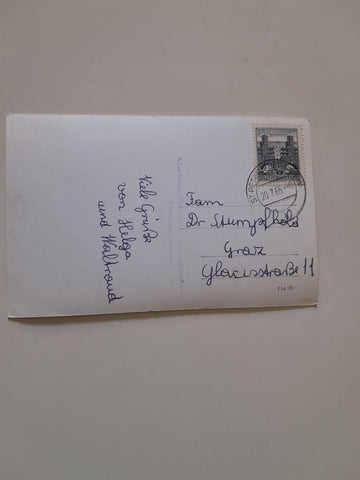 Viele Grüße
von Helga
und Waltraud
Fam
Dr Stumpfhold
Graz
Glacisstraße 11